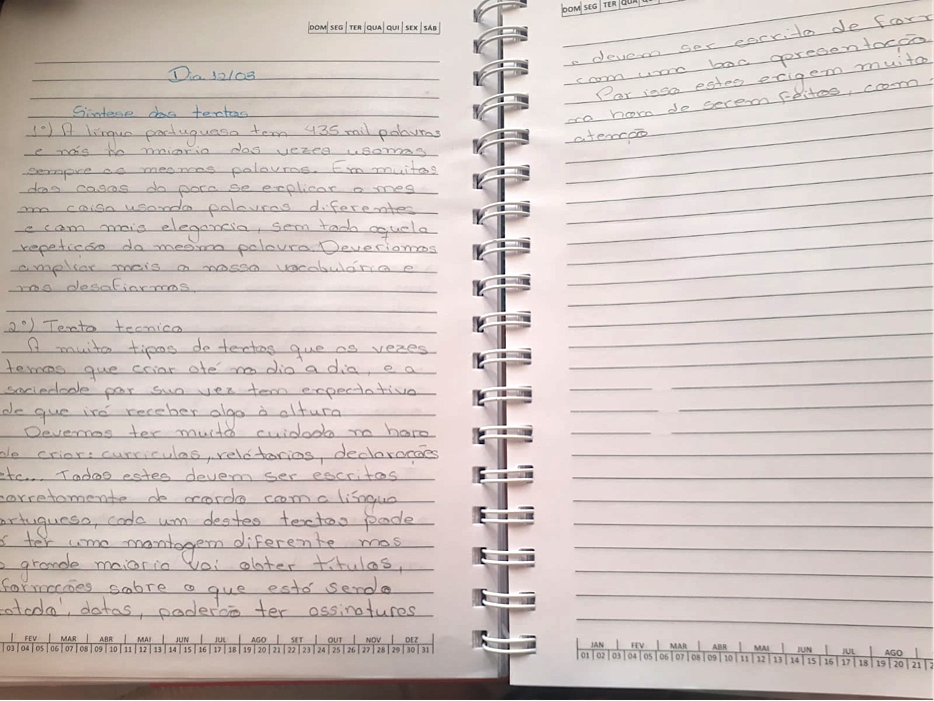 DOM SEG TER QUA QUI SEX SÁB
Dia 12/03
Síntese dos textos
1º) A língua portuguesa tem 435 mil palavras
e nós na maioria das vezes usamos
sempre as mesmas palavras. Em muitas
das casos da para se explicar a mes
ma coisa usando palavras diferentes
e com mais elegancia, sem toda aquela
repetição da mesma palavra. Deveriamos
ampliar mais o nosso vocabulário e
nos desafiarmos.
2º) Texto tecnico
A muito tipos de textos que as vezes
temos que criar até no dia a dia, e a
sociedade por sua vez tem expectativa
de que irá receber algo à altura
Devemos ter muito cuidado na hora
de criar: curriculos, relátorios, declarações
etc... Todos estes devem ser escritos
corretamente de acordo com a língua
ortuguesa, cada um destes textos pode
á ter uma montagem diferente mas
a grande maioria vai obter títulos,
formações sobre o que está sendo
atado, datas, poderão ter assinaturas
FEV MAR ABR MAI JUN JUL AGO SET OUT NOV DEZ
03 04 05 06 07 08 09 10 11 12 13 14 15 16 17 18 19 20 21 22 23 24 25 26 27 28 29 30 31
DOM SEG TER QUA
e devem ser escrito de form
com uma boa apresentação
Por isso estes exigem muito
na hora de serem feitos, com
atenção
JAN FEV MAR ABR MAI JUN JUL AGO
01 02 03 04 05 06 07 08 09 10 11 12 13 14 15 16 17 18 19 20 21